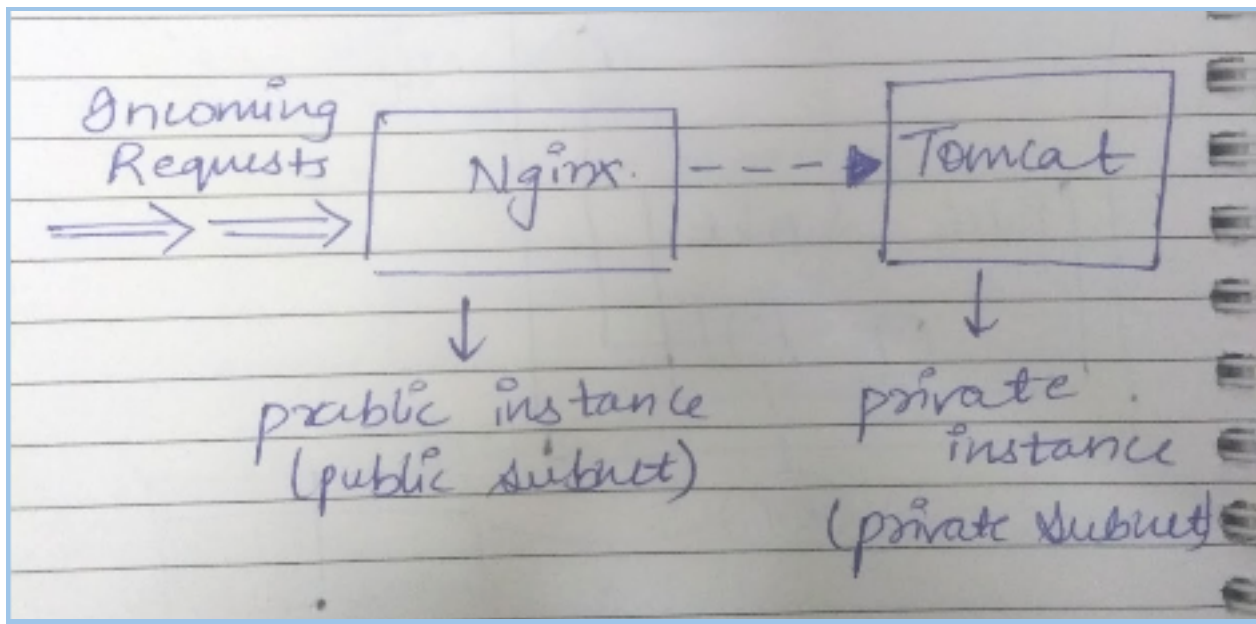 Incoming
Requests
Nginx.
Tomcat
prublic instance
(public subnet)
private
instance
(private subnet)